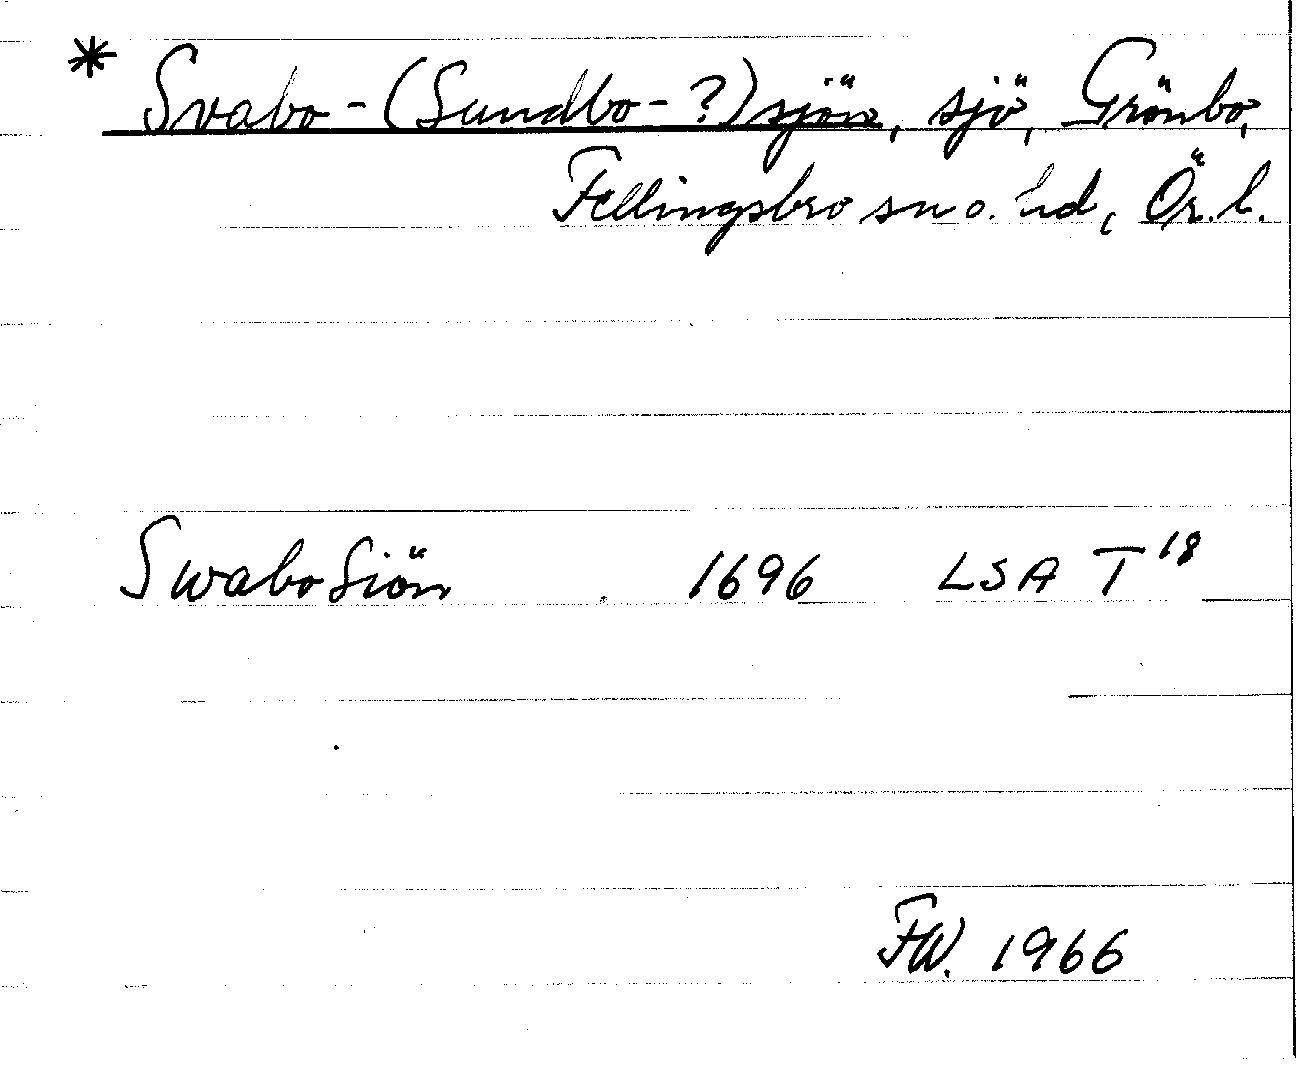 * Svabo-(Sundbo-?)sjön, sjö, Grönbo,
Fellingsbro sn o. hd, Ör. l.
Swabo Siön 1696 LSA T¹⁸
FW. 1966